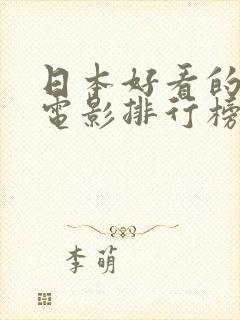 日本好看的
電影排行榜
李萌